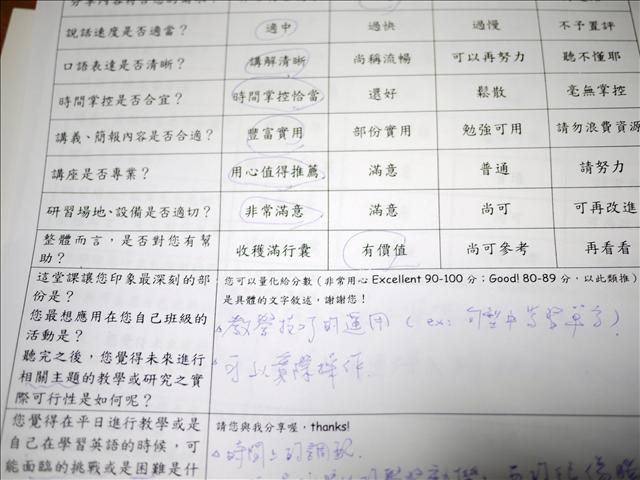 說話速度是否適當？ 適中 過快 過慢 不予置評
口語表達是否清晰？ 講解清晰 尚稱流暢 可以再努力 聽不懂耶
時間掌控是否合宜？ 時間掌控恰當 還好 鬆散 毫無掌控
講義、簡報內容是否合適？ 豐富實用 部份實用 勉強可用 請勿浪費資源
講座是否專業？ 用心值得推薦 滿意 普通 請努力
研習場地、設備是否適切？ 非常滿意 滿意 尚可 可再改進
整體而言，是否對您有幫助？ 收穫滿行囊 有價值 尚可參考 再看看
這堂課讓您印象最深刻的部
份是？
您最想應用在您自己班級的
活動是？
聽完之後，您覺得未來進行
相關主題的教學或研究之實
際可行性是如何呢？
您可以量化給分數（非常用心 Excellent 90-100 分；Good! 80-89 分，以此類推）
是具體的文字敘述，謝謝您！
教學技巧的運用（ex: 句型中學習單字）
可以實際操作.
您覺得在平日進行教學或是
自己在學習英語的時候，可
能面臨的挑戰或是困難是什
請您與我分享喔，thanks!
時間上的調配.